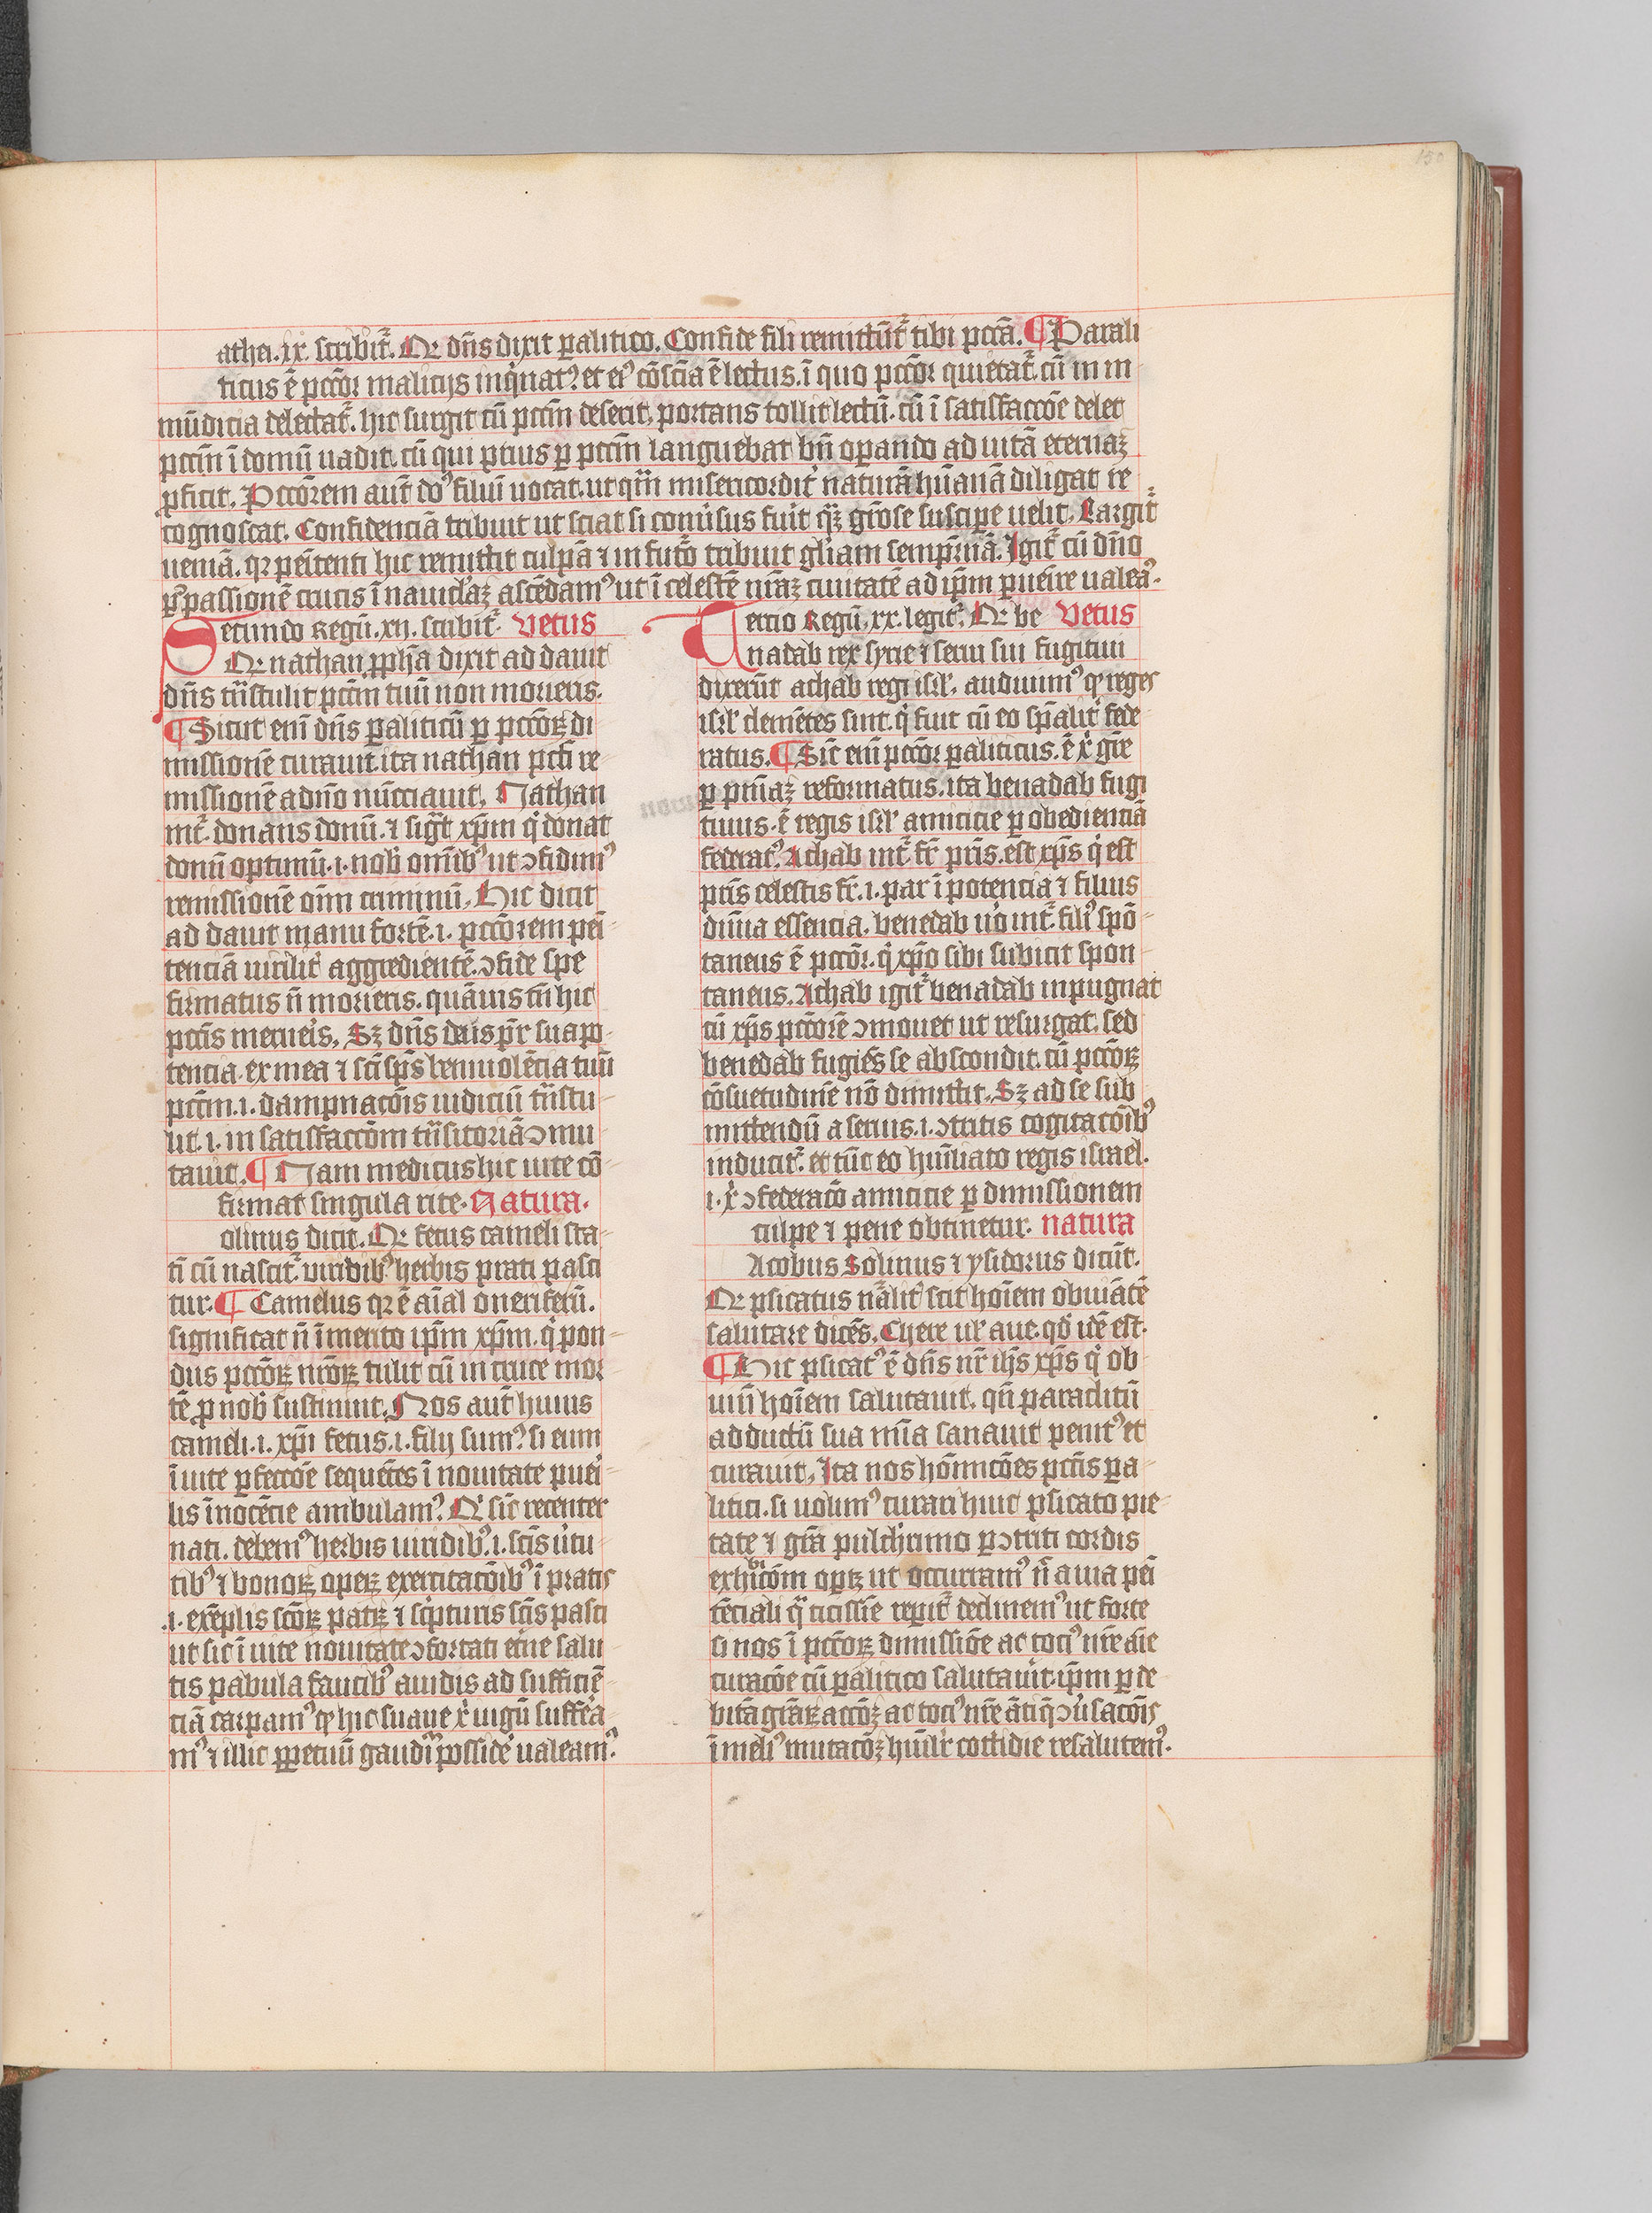 150
athei. ix. scribit᷑. Qr dn̄s dixit ꝑalitico. Confide fili remittūt᷑ tibi pccā. ¶ Parali
ticus ē pccōr maliciis inqͥnatꝰ. et eiꝰ cōsciā ē lectus. ī quo pccōr quietat᷑. cū in in
mūdicia delectat᷑. hic surgit cū pccm̄ deserit. portans tollit lectū. cū ī satisfaccōe delet
pccm̄ ī domū uadit. cū qui ptius ꝑ pccm̄ languebat bn̄ oꝑando ad uitā eternaꝫ
ꝓficit. Pccōrem aut̄ dōꝰ filium uocat. ut misericordit᷑ naturā hūanā diligat re
cognoscat. Confidenciā tribuit ut sciat si conuͥsus fuit̓ gr̄ose suscipe uelit. Largit᷑
ueniā. qr pēitenti hic remittit culpā ⁊ in futō tribuit gl̄iam semꝑnā. Igit᷑ cū dn̄o
ꝑ passionē crucis ī nauicl̄aꝫ ascēdamꝰ ut ī celestē nr̄aꝫ ciuitatē ad ip̄m ꝑueīre ualeaꝰ.
Secundo Regū. xii. scribit᷑. Vetus
Qr nathan ꝓph̄a dixit ad dauit
dn̄s tn̄stulit pctm̄ tuū non morieris.
¶ Sicut eni dn̄s ꝑaliticū ꝑ pccōꝝ di
missionē curauit. ita nathan pcti re-
missionē a dn̄o nūcciauit. Nathan
int᷑. donans donū. ⁊ sigͣt xp̄m qͥ donat
donū optimū. i. nob̄ omībꝰ ut ꝯfidimꝰ
remissionē oīm criminū. Hic dicit
ad dauit manu fortē. i. pccōrem pei-
tenciā uirilit̓ aggredientē. ꝯfide spe
firmatus n̄ morieris. quāuis tn̄ hic
pccīs merueīs. Sꝫ dn̄s deus pr̄ sua po-
tencia. ex mea ⁊ sci sp̄s beniuolēcia tuū
pctm̄. i. dampnacōis iudiciū tn̄stu-
lit. i. in satisfaccōm tn̄sitoriā ꝯmu-
tauit. ¶ Nam medicus hic uite cō-
firmat singula rite. Natura.
olinus dicit. Qr fetus cameli sta-
ti cū nascit᷑. uiridibꝰ herbis prati pasci
tur. ¶ Camelus qr ē aīal oneriferū.
significat n̄ īmerito ip̄m xp̄m. qͥ pon-
dus pccōꝝ nr̄oꝝ tulit cū in cruce mor
tē ꝓ nob̄ sustinuit. Nos aut̄ huius
cameli. i. xp̄i fetus. i. filij sumꝰ. si eum
ī uite ꝑfeccōe sequētes ī nouitate pueri-
lis īnocēcie ambulamꝰ. Qr sic̄ recenter
nati. debemꝰ herbis uiridibꝰ. i. scis uͥtu-
tibꝰ ⁊ bonoꝝ opeꝝ exercitacōibꝰ ī pratis
.i. exēplis scōꝝ patꝝ ⁊ scͥpturis scis pasci
ut sic ī uite nouitate ꝯfortati et̄ne salu
tis pabula faucibꝰ auidis ad sufficiē-
ciā carpamꝰ qͣ hic suaue xͥ iugū suffera-
mꝰ ⁊ illic ꝑpetuū gaudiū possidē ualeamꝰ.
Tercio Regū. xx. legit᷑. Qr be Vetus
nadab rex syrie ⁊ serui sui fugitiui
dixerūt achab regi isrl̄. audiuimꝰ qͣ reges
isrl̄ clemētes sint. qͥ fuit cū eo sp̄alit̓ fede-
ratus. ¶ Sic̄ eni pccōr ꝑaliticus. ē xͥ gr̄e
ꝑ pn̄iaꝫ reformatus. ita benadab fugi
tiuus. ē regis isrl̄ amicicie ꝑ obedienciā
federatꝰ. Achab int᷑. fr̄ pris. est xp̄s qͥ est
pr̄is celestis fr̄. i. par ī potencia ⁊ filius
diuīa essencia. benedab uō int᷑. filiꝰ spō-
taneus ē pccōr. qͥ xp̄o sibi subicit spon-
taneus. Achab igit᷑ benadab inpugnat
cū xp̄s pccōrē ꝯmouet ut resurgat. sed
benedab fugiēs se abscondit. cū pccōꝝ
cōsuetudinē nō dimittit. Sꝫ ad se sub
mittendū a seruis. i. ꝯtritis cogitacōibꝰ
inducit᷑. et tūc eo hūiliato regis israel.
i. xͥ ꝯfederacō amicicie ꝑ dimissionem
culpe ⁊ pene obtinetur. natura
Acobus Solinus ⁊ ysidorus dicūt.
Qr psicatus nr̄alit̓ scit hoīem obuiātē
salutare dicēs. Chere ul̓ aue. qd̓ idē est.
¶ Hic psicatꝰ ē dn̄s nr̄ ih̄s xp̄s qͥ ob
uiū hoīem salutauit. qn̄ paraclitū
adductū sua mīa sanauit penitꝰ et
curauit. Ita nos hōines pctīs ꝑa-
litici. si uolumꝰ curari huic psicato pie-
tate ⁊ gr̄a pulchͥrimo ꝑ ꝯtriti cordis
exhibicōm optꝫ ut occurramꝰ n̄ a uia pei
tēciali decline̅mꝰ ut forte
si nos ī pccōꝝ dimissiōe ac tociꝰ nr̄e aīe
curacōe cū ꝑalitico salutauit̓. ip̄m ꝑ de
bitā gr̄aꝝ accōꝫ ac tociꝰ nr̄e ātiqͣ ꝯuͥsacōis
ī meliꝰ mutacōꝫ hūilit̓ cottidie resalutemꝰ.